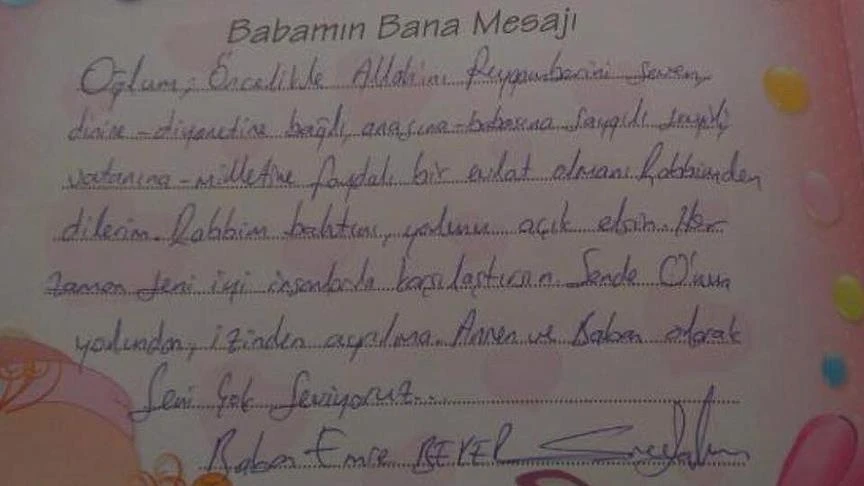 Babamın Bana Mesajı
Oğlum, Öncelikle Allahını Peygamberini seven,
dinine-diyanetine bağlı, anasına-babasına saygılı sevgili,
vatanına-milletine faydalı bir evlat olmanı Rabbimden
dilerim. Rabbim bahtını, yolunu açık etsin. Her
zaman seni iyi insanlarla karşılaştırsın. Sende O'nun
yolundan, izinden ayrılma. Annen ve Baban olarak
Seni Çok Seviyoruz...
Baban Emre